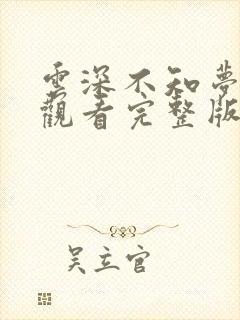 雲深不知夢
觀看完整版
吳立官